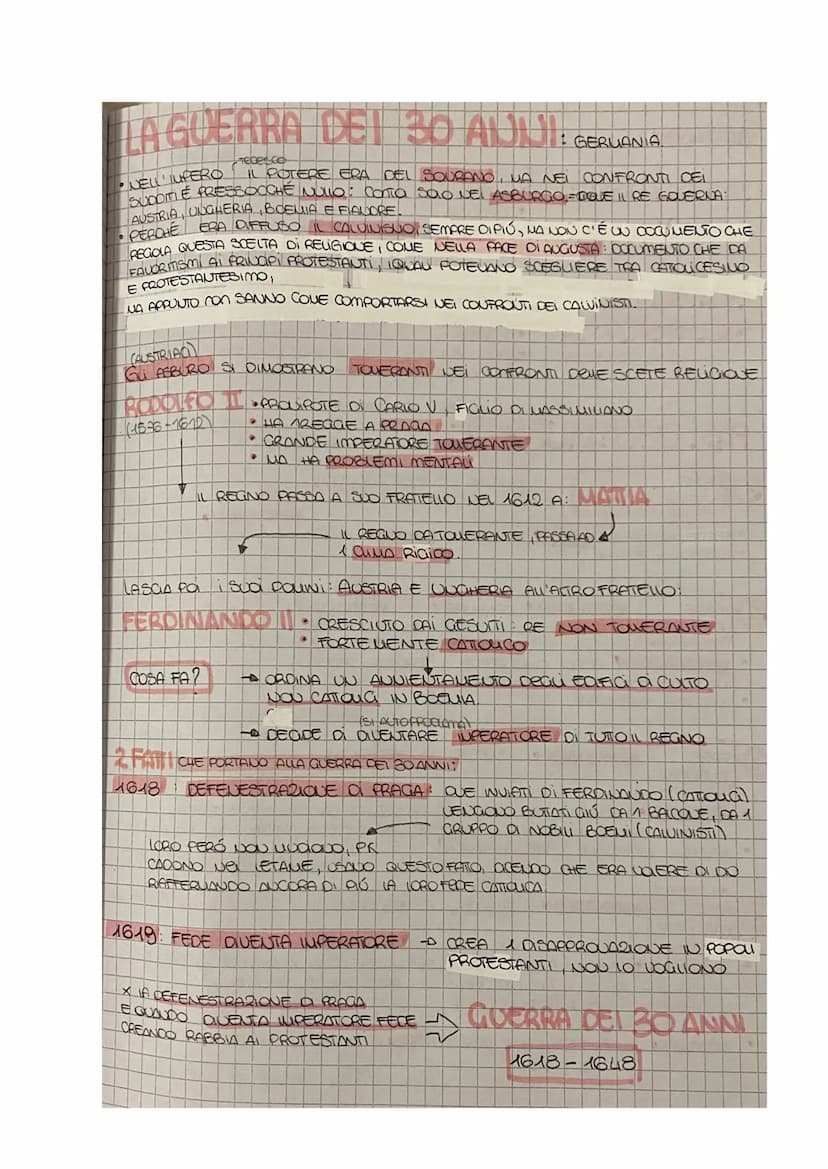 LA GUERRA DEI 30 ANNI: GERMANIA
TEDESCO
• NELL'IMPERO IL POTERE ERA DEL SOVRANO, MA NEI CONFRONTI DEI
SUDDITI É PRESSOCCHÉ NULLO: CONTA SOLO NEI ASBURGO, DOVE IL RE GOVERNA:
AUSTRIA, UNGHERIA, BOEMIA E FIANDRE.
• PERCHÉ ERA DIFFUSO IL CALVINISMO, SEMPRE DI PIÚ, MA NON C'É UN DOCUMENTO CHE
REGOLA QUESTA SCELTA DI RELIGIONE, COME NELLA PACE DI AUGUSTA: DOCUMENTO CHE DA
FAVORITISMI AI PRINCIPI PROTESTANTI, I QUALI POTEVANO SCEGLIERE TRA CATTOLICESIMO
E PROTESTANTESIMO,
MA APPUNTO NON SANNO COME COMPORTARSI NEI CONFRONTI DEI CALVINISTI.
(AUSTRIACI)
GLI ASBURO SI DIMOSTRANO TOLLERANTI NEI CONFRONTI DELLE SCETE RELIGIOSE
RODOLFO II • PRONIPOTE DI CARLO V, FIGLIO DI MASSIMILIANO
(1576-1612) • HA 1 REGGE A PRAGA
• GRANDE IMPERATORE TOLLERANTE
• MA HA PROBLEMI MENTALI
IL REGNO PASSA A SUO FRATELLO NEL 1612 A: MATTIA
IL REGNO DA TOLLERANTE, PASSA AD
1 CLIMA RIGIDO.
LASCIA POI I SUOI DOMINI: AUSTRIA E UNGHERIA ALL'ALTRO FRATELLO:
FERDINANDO II • CRESCIUTO DAI GESUITI: RE NON TOLLERANTE
• FORTEMENTE CATTOLICO
COSA FA? → ORDINA UN ANNIENTAMENTO DEGLI EDIFICI DI CULTO
NON CATTOLICI IN BOEMIA.
(SI AUTOPROCLAMA)
→ DECIDE DI DIVENTARE IMPERATORE DI TUTTO IL REGNO
2 FATTI CHE PORTANO ALLA GUERRA DEI 30 ANNI:
1618: DEFENESTRAZIONE DI PRAGA: DUE INVIATI DI FERDINANDO (CATTOLICI)
VENGONO BUTTATI GIÚ DA 1 BALCONE, DA 1
GRUPPO DI NOBILI BOEMI (CALVINISTI)
LORO PERÓ NON MUOIONO, PK
CADONO NEL LETAME, USANO QUESTO FATTO, DICENDO CHE ERA VOLERE DI DIO
RAFFERMANDO ANCORA DI PIÚ LA LORO FEDE CATTOLICA
1619: FEDE DIVENTA IMPERATORE → CREA 1 DISAPPROVAZIONE IN POPOLI
PROTESTANTI, NON LO VOGLIONO
X LA DEFENESTRAZIONE DI PRAGA
E QUANDO DIVENTA IMPERATORE FECE ⇒ GUERRA DEI 30 ANNI
CREANDO RABBIA AI PROTESTANTI
1618 - 1648